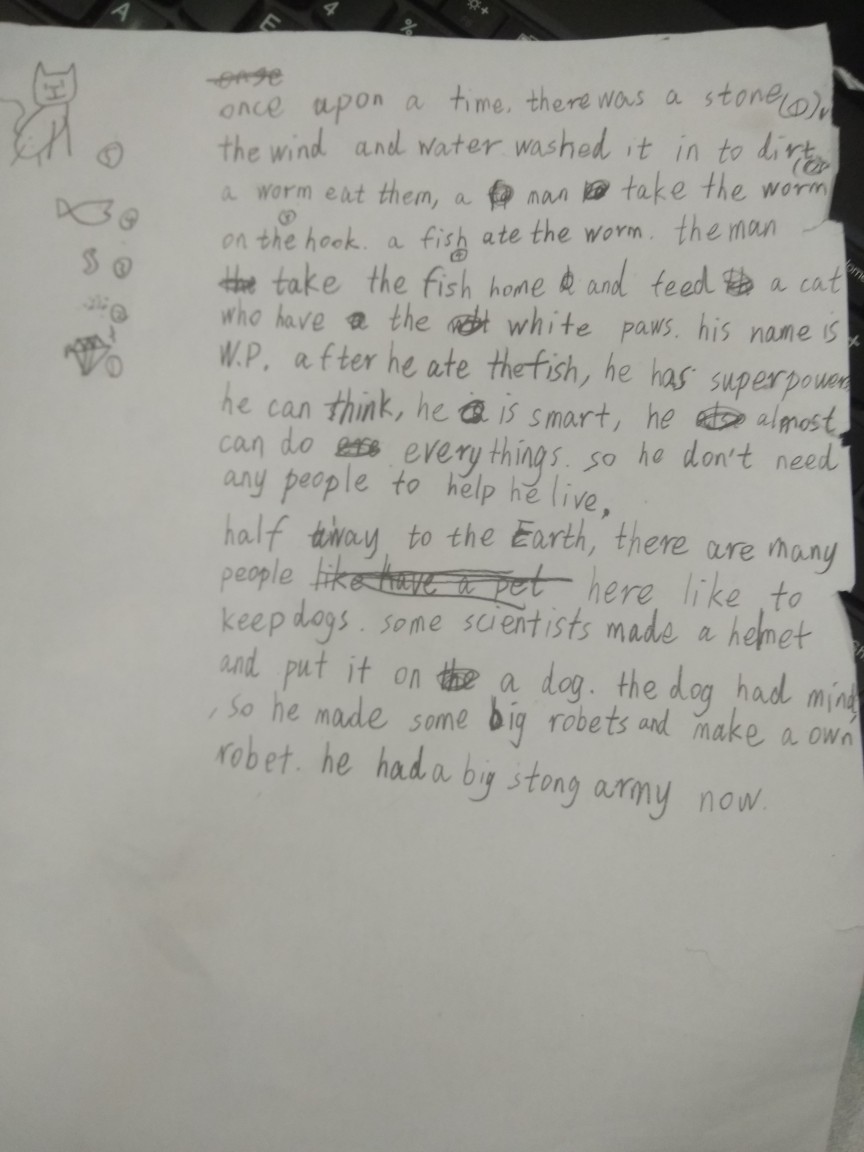 A
E
4
%
once upon a time. there was a stone(1),
the wind and water washed it in to dirt
(2)
a worm eat them, a man take the worm
3
on the hook. a fish ate the worm. the man
4
take the fish home and feed a cat
who have the white paws. his name is
W.P. after he ate the fish, he has superpower
he can think, he is smart, he almost
can do everythings. so he don't need
any people to help he live,
half away to the Earth, there are many
people here like to
keep dogs. some scientists made a helmet
and put it on a dog. the dog had mind
, so he made some big robets and make a own
robet. he had a big stong army now.
5
4
3
2
1